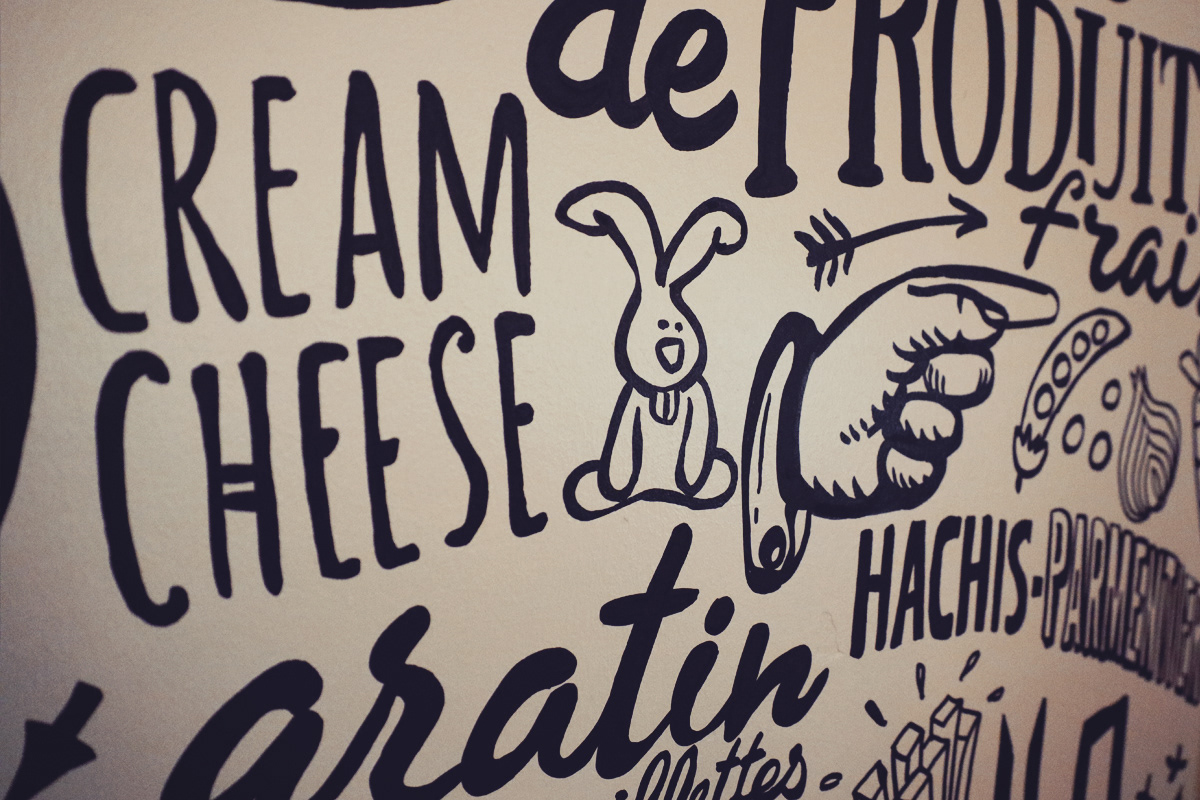 de PRODUIT
frai
CREAM
CHEESE
HACHIS-PARMENTIE
gratin